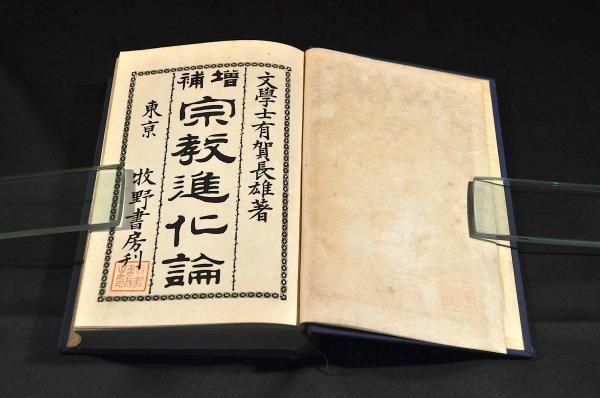 文學士有賀長雄著
增補
宗教進化論
東亰
牧野書房刊